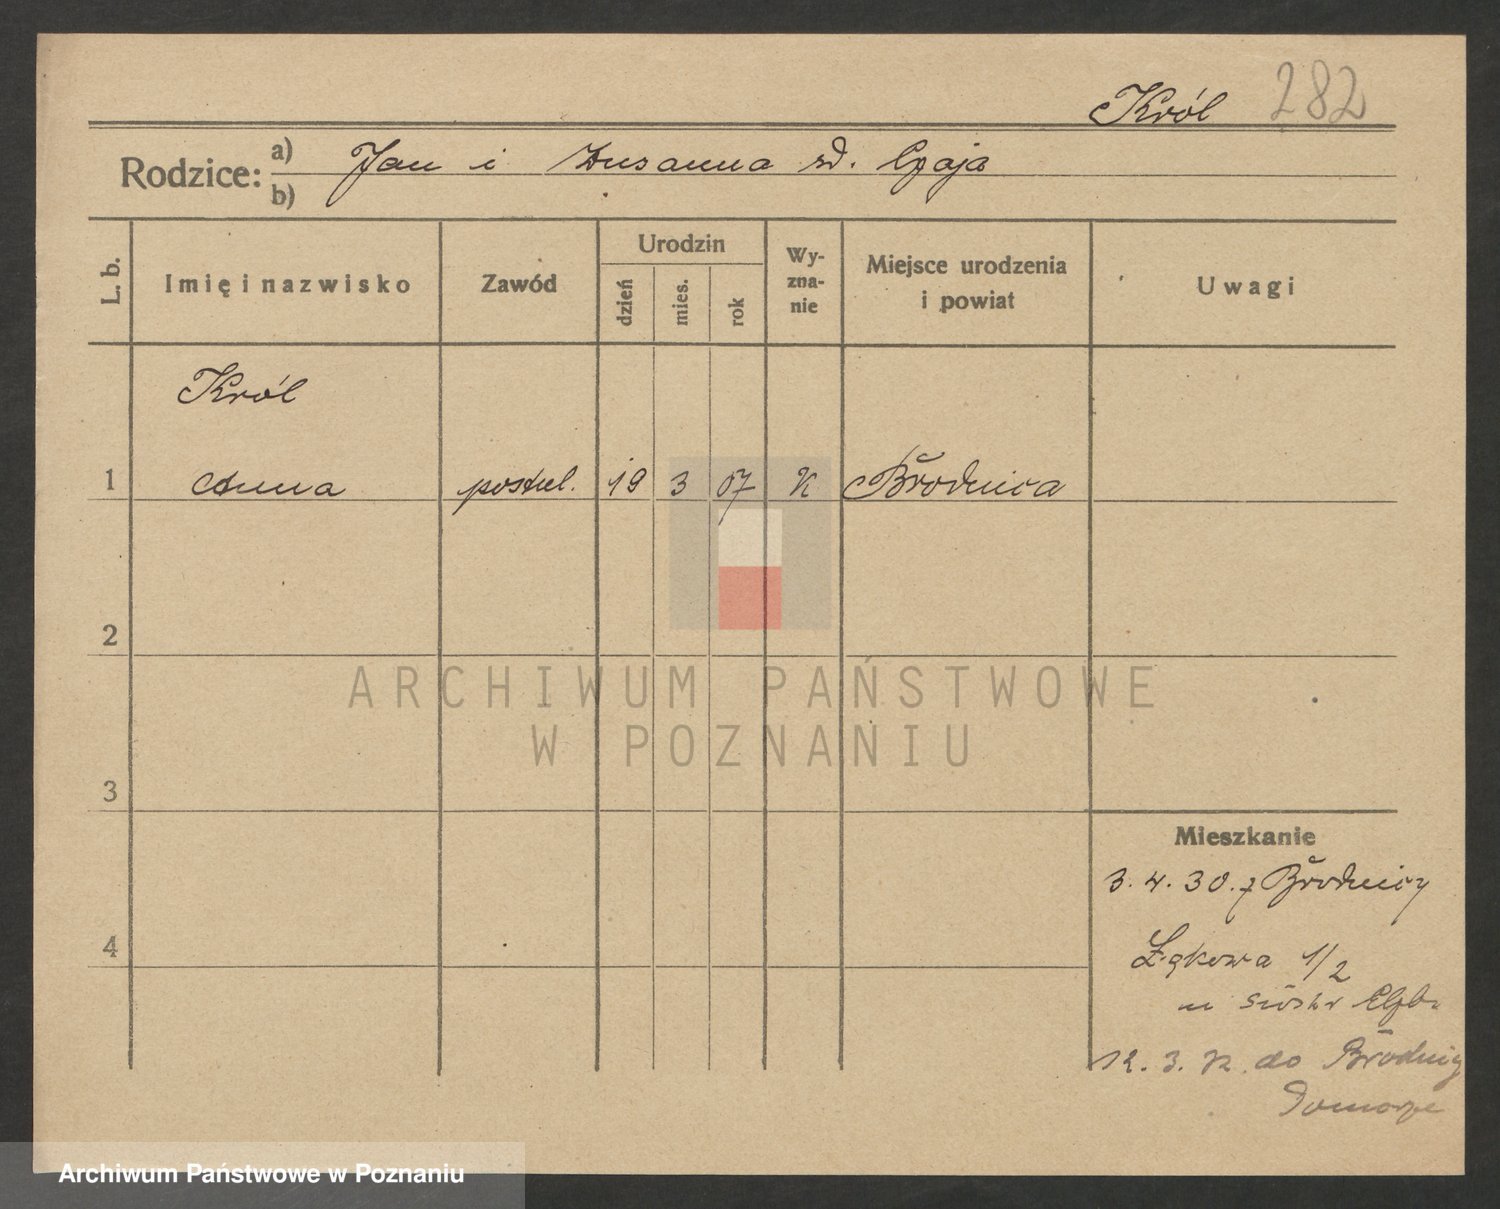 Król 282
Rodzice: a) Jan i Zusanna zd. Czaja
b)
L. b. Imię i nazwisko Zawód Urodzin dzień mies. rok Wy-zna-nie Miejsce urodzenia i powiat Uwagi
Król
1 Anna postul. 19 3 07 K Brodnica
2
ARCHIWUM PAŃSTWOWE
W POZNANIU
3
Mieszkanie
3. 4. 30. z Brodnicy
4
Łąkowa 1/2
u sióstr Elżb.
12. 3. do Brodnicy
Pomorze
Archiwum Państwowe w Poznaniu